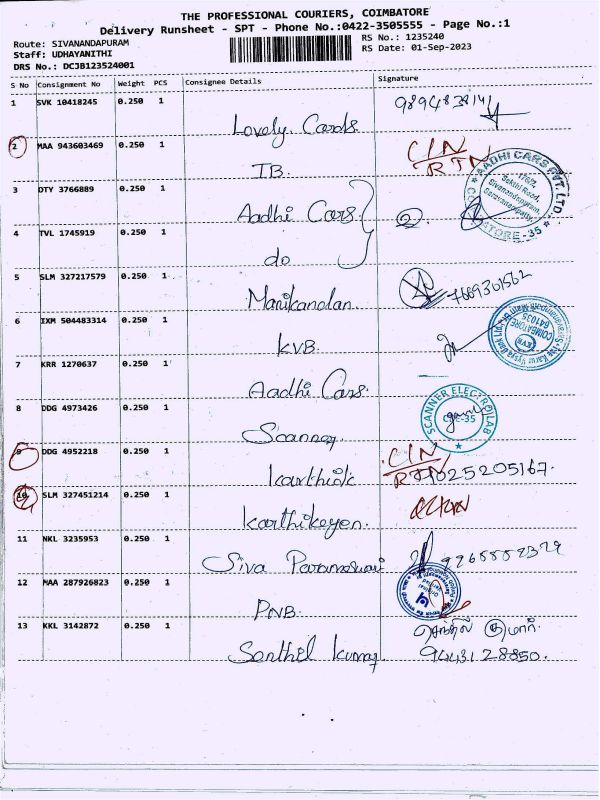 THE PROFESSIONAL COURIERS, COIMBATORE
Delivery Runsheet - SPT - Phone No.:0422-3505555 - Page No.:1
Route: SIVANANDAPURAM
RS No.: 1235240
Staff: UDHAYANITHI
RS Date: 01-Sep-2023
DRS No.: DCJB123524001
S No Consignment No Weight PCS Consignee Details Signature
1 SVK 10418245 0.250 1
Lovely Cards
2 MAA 943603469 0.250 1 CIN
RTN
IB
3 DTY 3766889 0.250 1
Aadhi Cars
AADHI CARS PVT. LTD.
Sakthi Road,
Sivanandapuram,
Saravanampatty,
COIMBATORE-35
4 TVL 1745919 0.250 1
do
5 SLM 327217579 0.250 1
Manikandan
6 IXM 504483314 0.250 1
KVB
COIMBATORE
641035
KVB
7 KRR 1270637 0.250 1
Aadhi Cars
8 DDG 4973426 0.250 1
Scanner
SCANNER ELECTROLAB
CBE-35
9 DDG 4952218 0.250 1 CIN
RTN
Karthik
10 SLM 327451214 0.250 1
Karthikeyen
11 NKL 3235953 0.250 1
12 MAA 287926823 0.250 1
PNB
13 KKL 3142872 0.250 1
செந்தில் குமார்
Senthil Kumar
9443128850